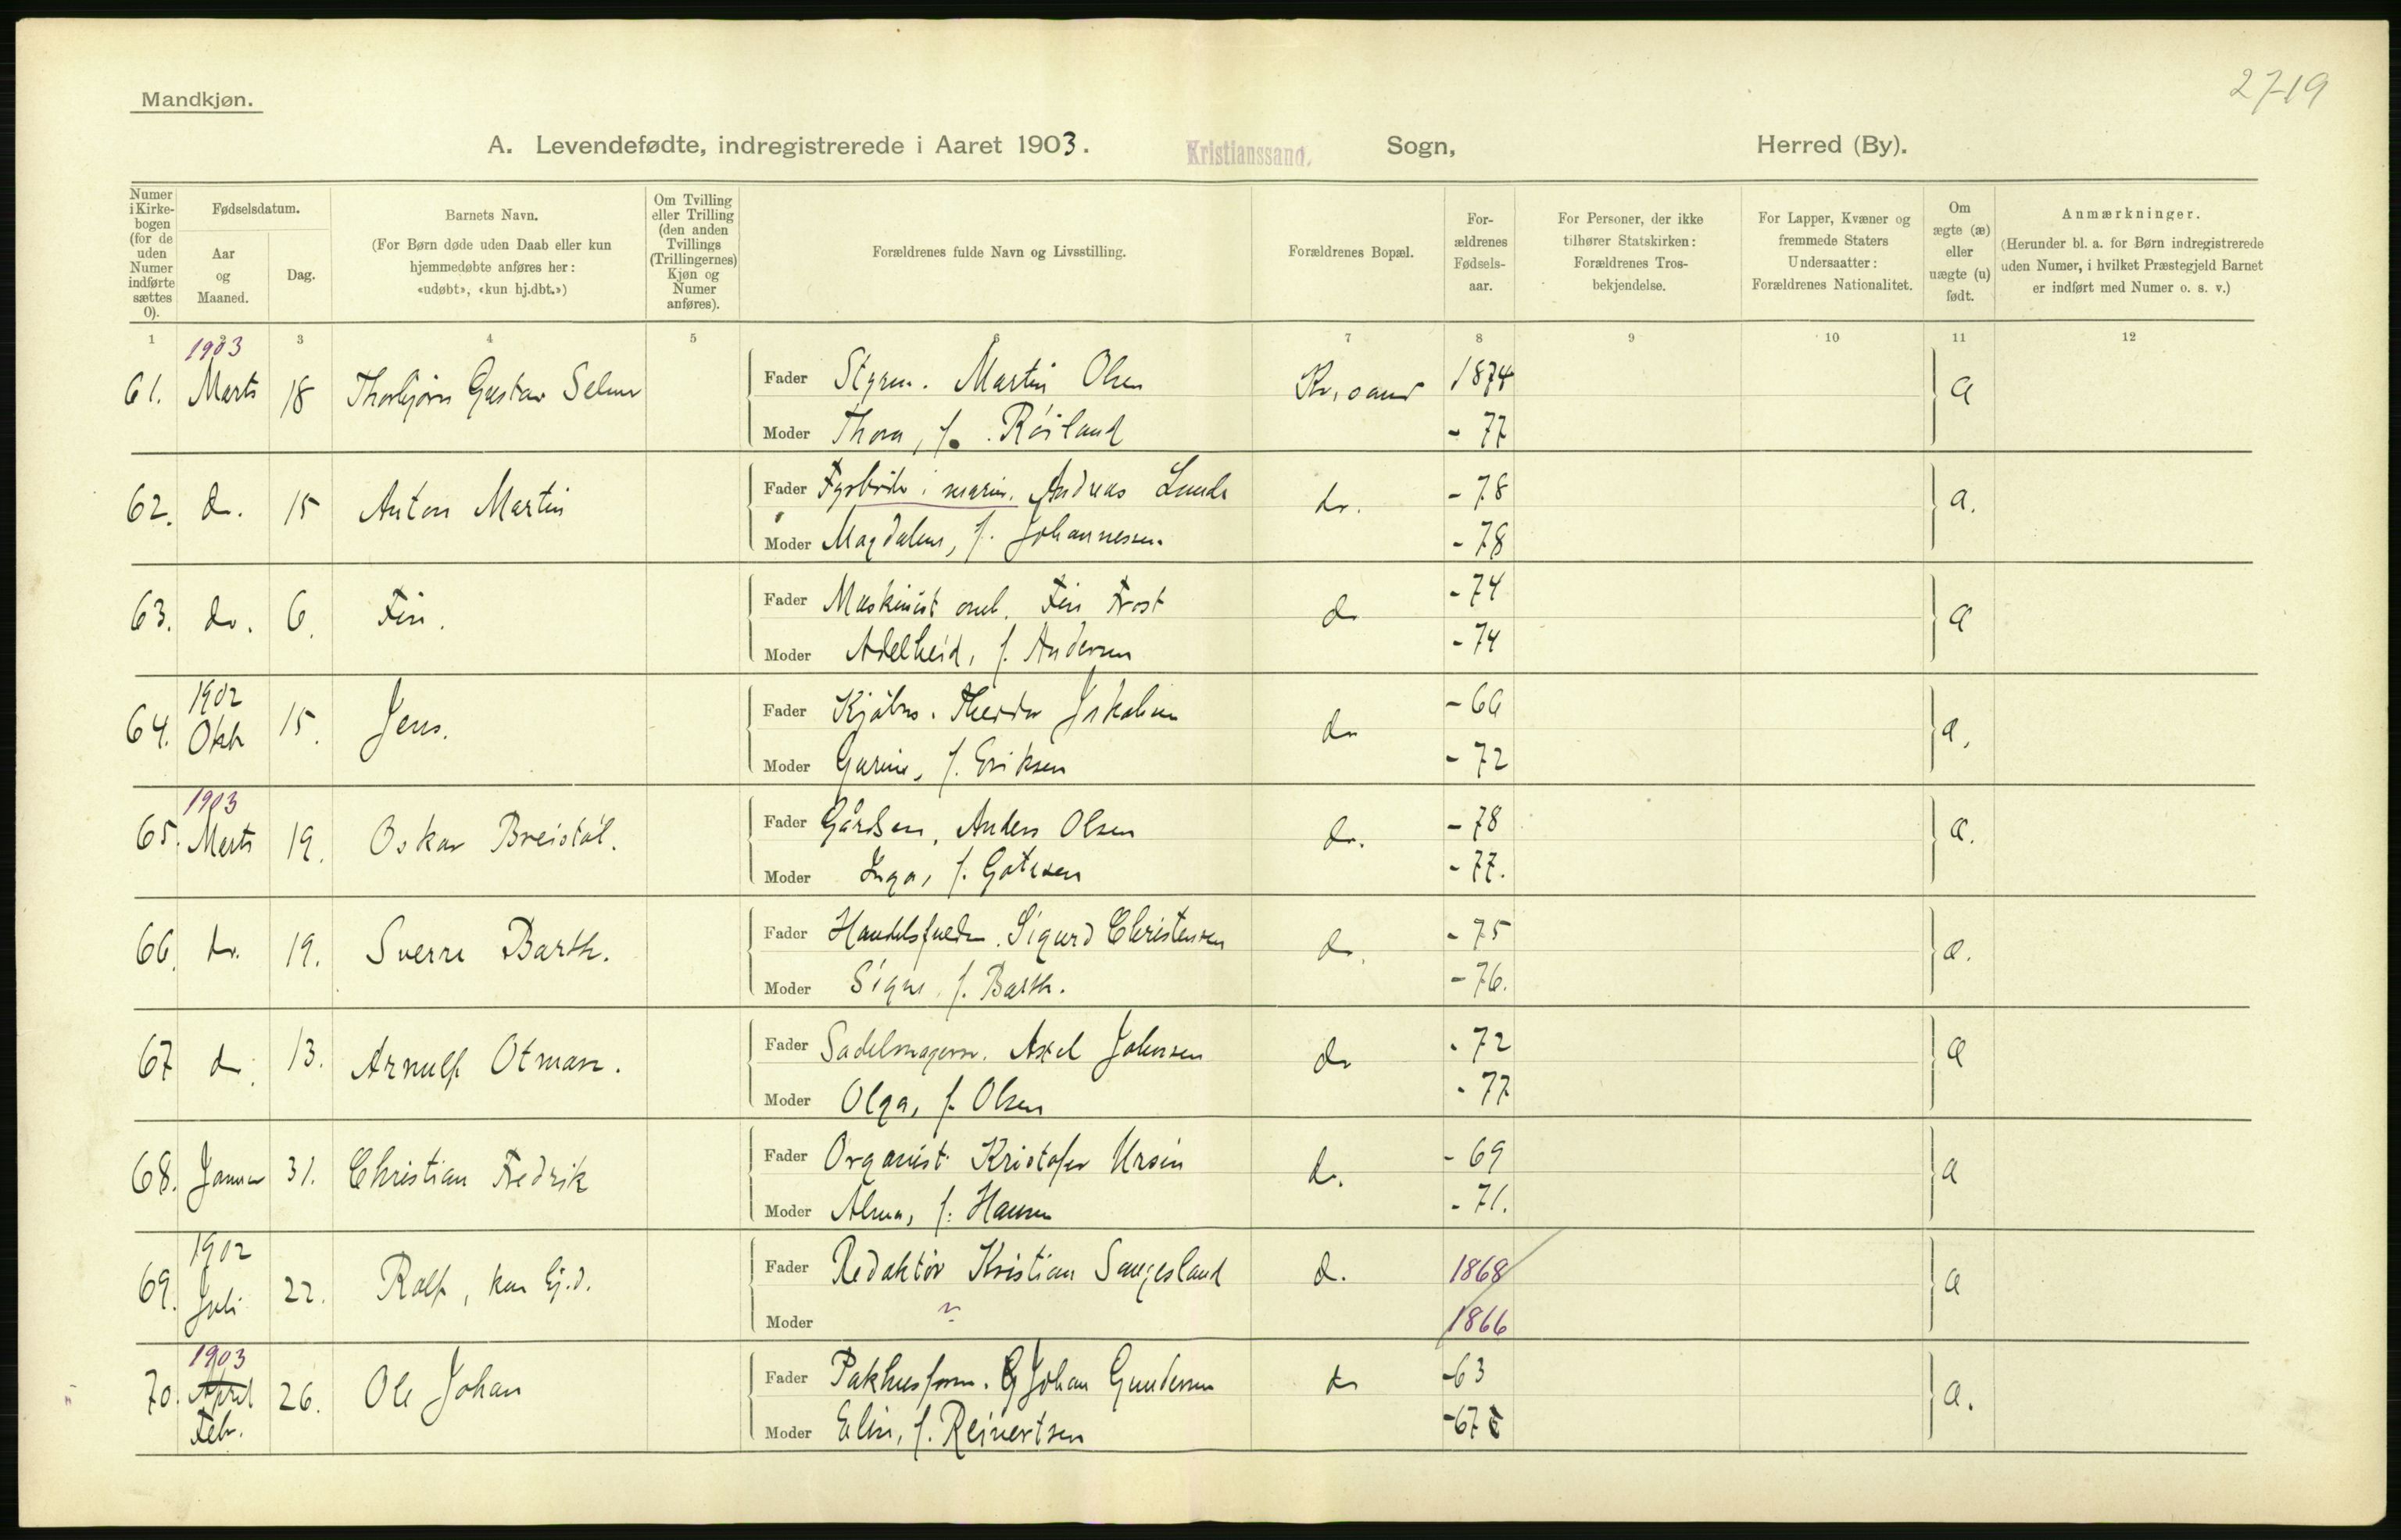 27-19
Mandkjøn.
A. Levendefødte, indregistrerede i Aaret 1903. Kristianssand. Sogn, Herred (By).
Numer i Kirkebogen (for de uden Numer indførte sættes 0).
Fødselsdatum.
Aar og Maaned.
Dag.
Barnets Navn.
(For Børn døde uden Daab eller kun hjemmedøbte anføres her: «udøbt», «kun hj.dbt.»)
Om Tvilling eller Trilling (den anden Tvillings (Trillingernes) Kjøn og Numer anføres).
Forældrenes fulde Navn og Livsstilling.
Forældrenes Bopæl.
For-ældrenes Fødsels-aar.
For Personer, der ikke tilhører Statskirken: Forældrenes Tros-bekjendelse.
For Lapper, Kvæner og fremmede Staters Undersaatter: Forældrenes Nationalitet.
Om ægte (æ) eller uægte (u) født.
Anmærkninger.
(Herunder bl. a. for Børn indregistrerede uden Numer, i hvilket Præstegjeld Barnet er indført med Numer o. s. v.)
1 2 3 4 5 6 7 8 9 10 11 12
1903
61. Marts 18 Thorbjørn Gustav Selmer Fader Styrm. Martin Olsen Kr.sand 1874 æ
Moder Thora, f. Røiland - 77
62. do. 15 Anton Martin Fader Fyrbøder i marin. Andreas Lunde do. - 78 æ.
Moder Magdalene, f. Johannessen. - 78
63. do. 6. Fin. Fader Maskinist omb. Fin Frost do - 74 æ
Moder Adelheid, f. Andersen - 74
1902
64. Okt 15. Jens. Fader Theodor Jakobsen do - 66 æ.
Moder Gurine, f. Eriksen - 72
1903
65. Marts 19. Oskar Breistøl. Fader Anders Olsen do. - 78 æ.
Moder Inga, f. - 77.
66. do. 19. Sverre Barth. Fader Handelsfuldm. Sigurd Christensen do. - 75 æ.
Moder Signe, f. Barth. - 76.
67 do. 13. Arnulf Otman. Fader Sadelmagersv. Axel Johnsen do - 72 æ
Moder Olga, f. Olsen - 77
68. Januar 31. Christian Fredrik Fader Organist Kristofer Ursin do. - 69 æ
Moder Alma, f. Hansen - 71.
1902
69. Juli 22. Ralf, kun hj.d. Fader Redaktør Kristian Sangesland do. 1868 æ
Moder 1866
1903
70. April 26. Ole Johan Fader Pakhusform. G Johan Gundersen do -63 æ.
Febr. Moder Elin, f. Reinertsen -67